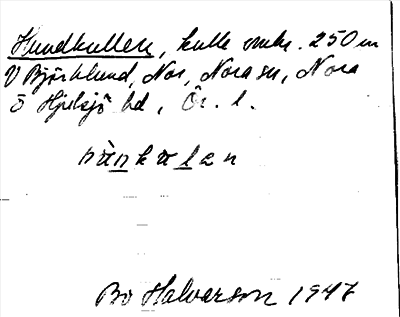 Hundkullen, kulle omkr. 250 m
V Björklund, Nor, Nora sn, Nora
o Hjulsjö bd, Ör. l.
Bo Halvarson 1947